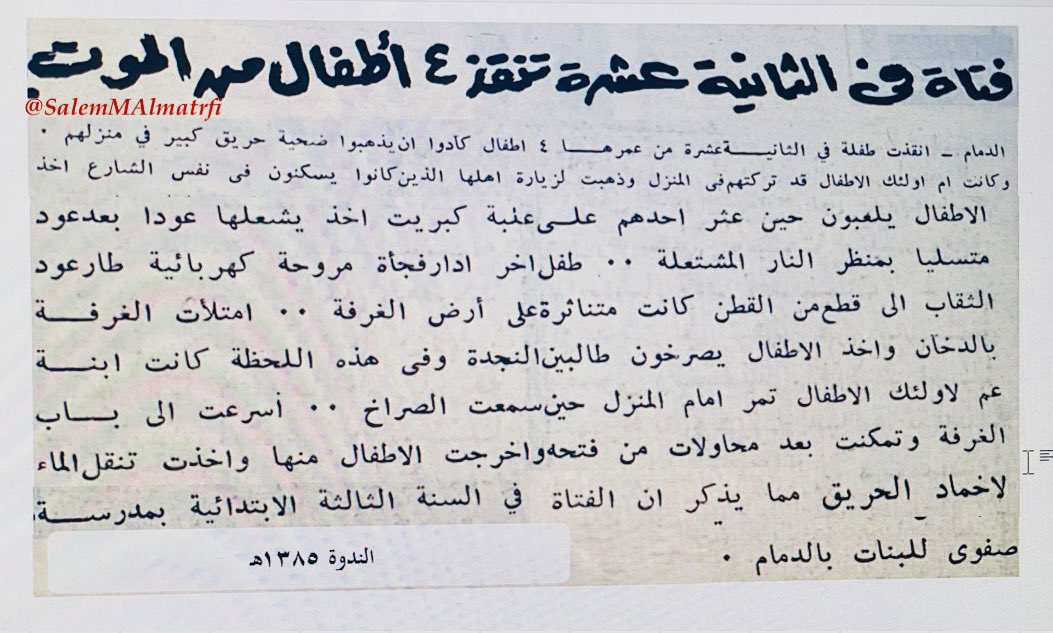 فتاة في الثانية عشرة تنقذ ٤ أطفال من الموت
@SalemMAlmatrfi
الدمام ــ انقذت طفلة في الثانيــة عشرة من عمرهــا ٤ اطفال كادوا ان يذهبوا ضحية حريق كبير في منزلهم ٠
وكانت ام اولئك الاطفال قد تركتهم فى المنزل وذهبت لزيارة اهلها الذين كانوا يسكنون فى نفس الشارع اخذ
الاطفال يلعبون حين عثر احدهم علــى علبة كبريت اخذ يشعلها عودا بعد عود
متسليا بمنظر النار المشتعلة ٠٠ طفل اخر ادار فجأة مروحة كهربائية طار عود
الثقاب الى قطع من القطن كانت متناثرة على أرض الغرفة ٠٠ امتلأت الغرفــة
بالدخان واخذ الاطفال يصرخون طالبين النجدة وفى هذه اللحظة كانت ابنــة
عم لاولئك الاطفال تمر امام المنزل حين سمعت الصراخ ٠٠ أسرعت الى بــاب
الغرفة وتمكنت بعد محاولات من فتحه واخرجت الاطفال منها واخذت تنقل الماء
لاخماد الحريق مما يذكر ان الفتاة في السنة الثالثة الابتدائية بمدرســة
صفوى للبنات بالدمام ٠
الندوة ١٣٨٥هـ